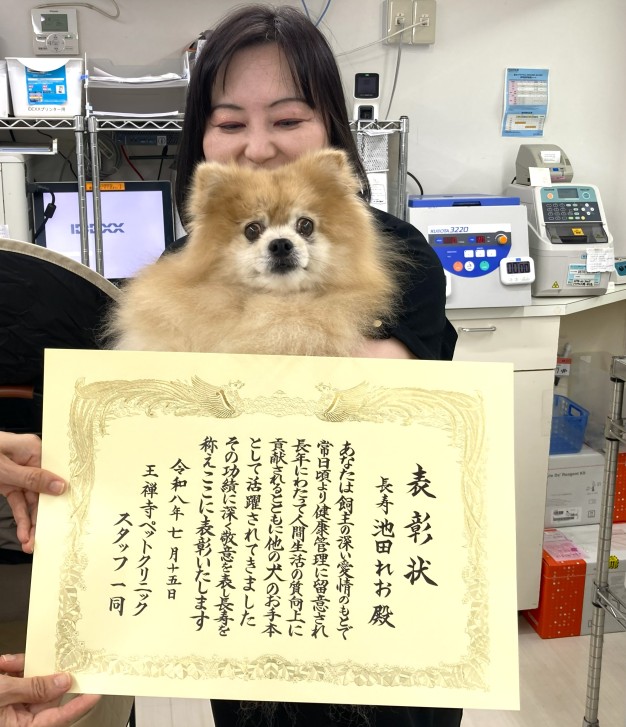 表彰状
長寿 池田れお殿
あなたは飼主の深い愛情のもとで
常日頃より健康管理に留意され
長年にわたって人間生活の質向上に
貢献されるとともに他の犬のお手本
として活躍されてきました
その功績に深く敬意を表し長寿を
称えここに表彰いたします
令和八年七月十五日
王禅寺ペットクリニック
スタッフ一同
IDEXX
KUBOTA 3220